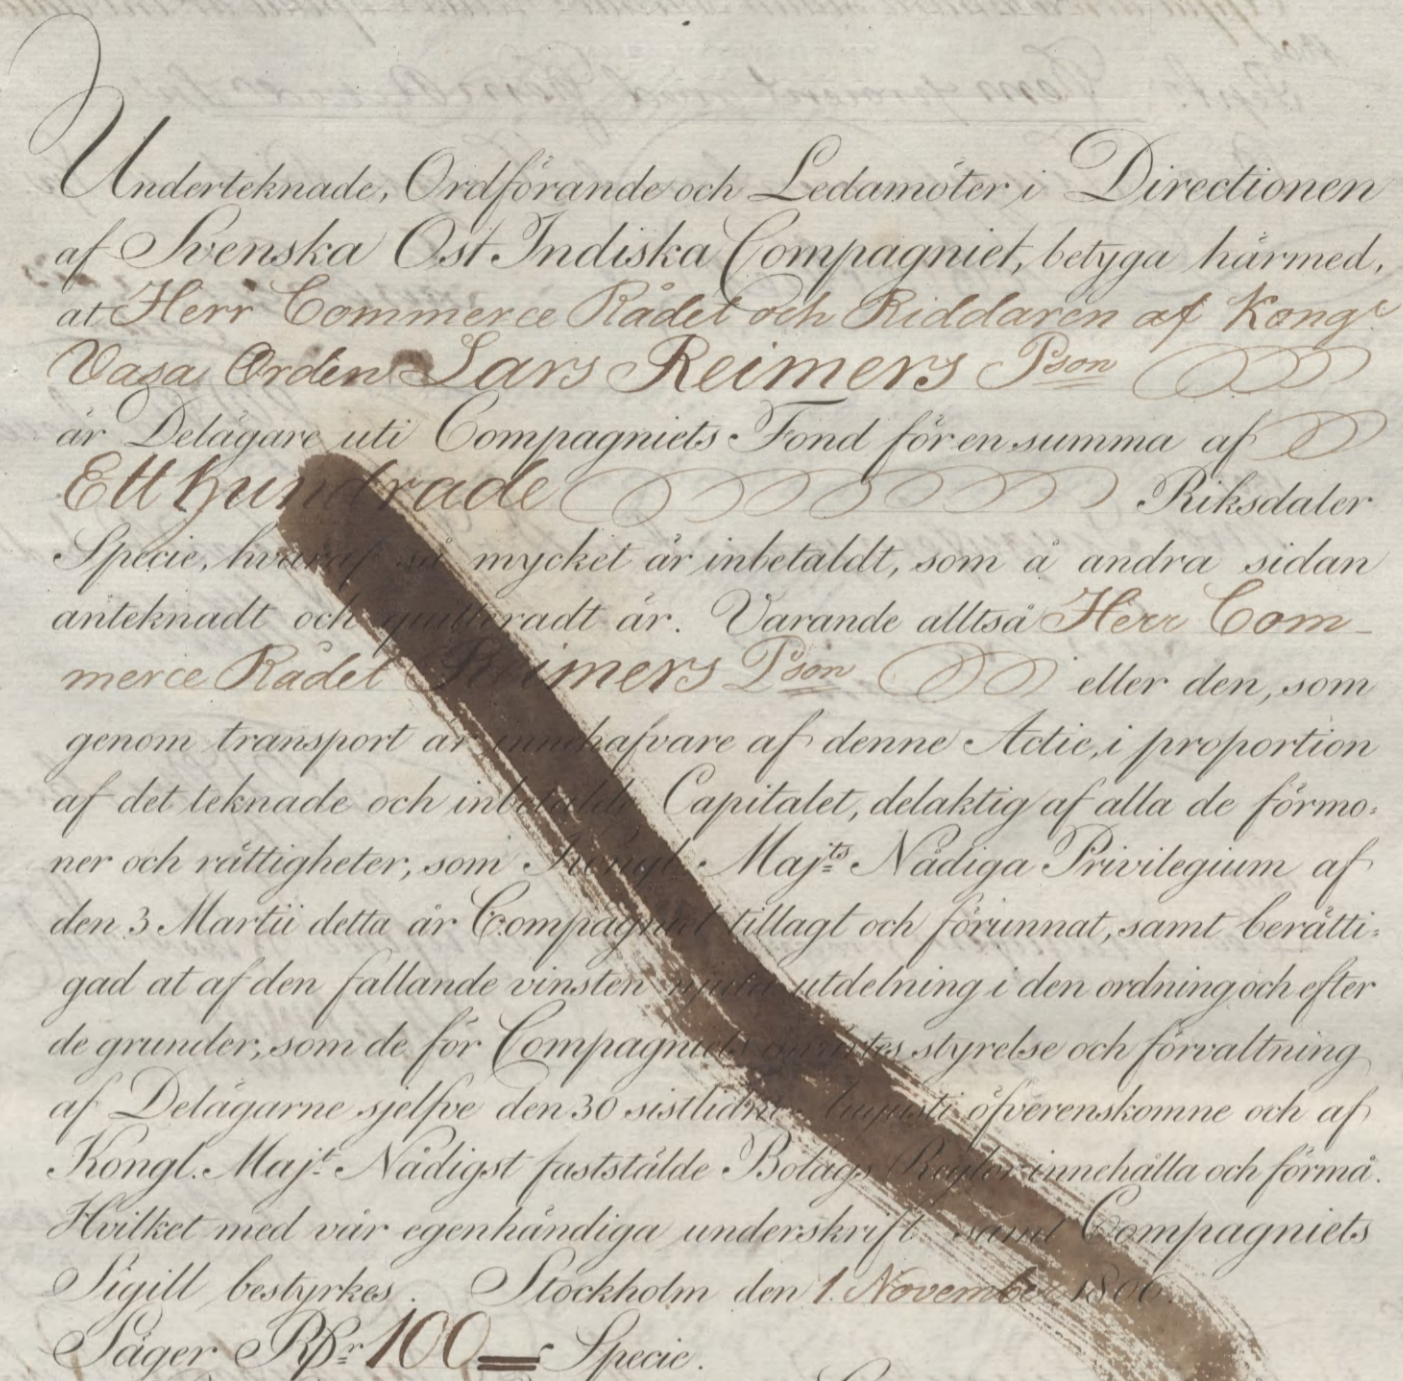 Underteknade, Ordförande och Ledamöter i Directionen
af Svenska Ost Indiska Compagniet, betyga härmed,
at Herr Commerce Rådet och Riddaren af Kongl
Vasa Orden Lars Reimers Pson
är Delägare uti Compagniets Fond för en summa af
Ett hundrade Riksdaler
Specie, hvaraf så mycket är inbetaldt, som å andra sidan
anteknadt och quitteradt är. Varande alltså Herr Com-
merce Rådet Reimers Pson eller den, som
genom transport är innehafvare af denne Actie, i proportion
af det teknade och inbetaldte Capitalet, delaktig af alla de förmo:
ner och rättigheter, som Kongl. Maj:ts Nådiga Privilegium af
den 3 Martii detta år Compagniet tillagt och förunnat, samt berätti:
gad at af den fallande vinsten njuta utdelning i den ordning och efter
de grunder, som de för Compagniets styrelse och förvaltning
af Delägarne sjelfve den 30 sistlidne Augusti öfverenskomne och af
Kongl. Maj:t Nådigst faststälde Bolags Reglor innehålla och förmå.
Hvilket med vår egenhändiga underskrift samt Compagniets
Sigill bestyrkes. Stockholm den 1. November 1806.
Säger RDr 100 Specie.